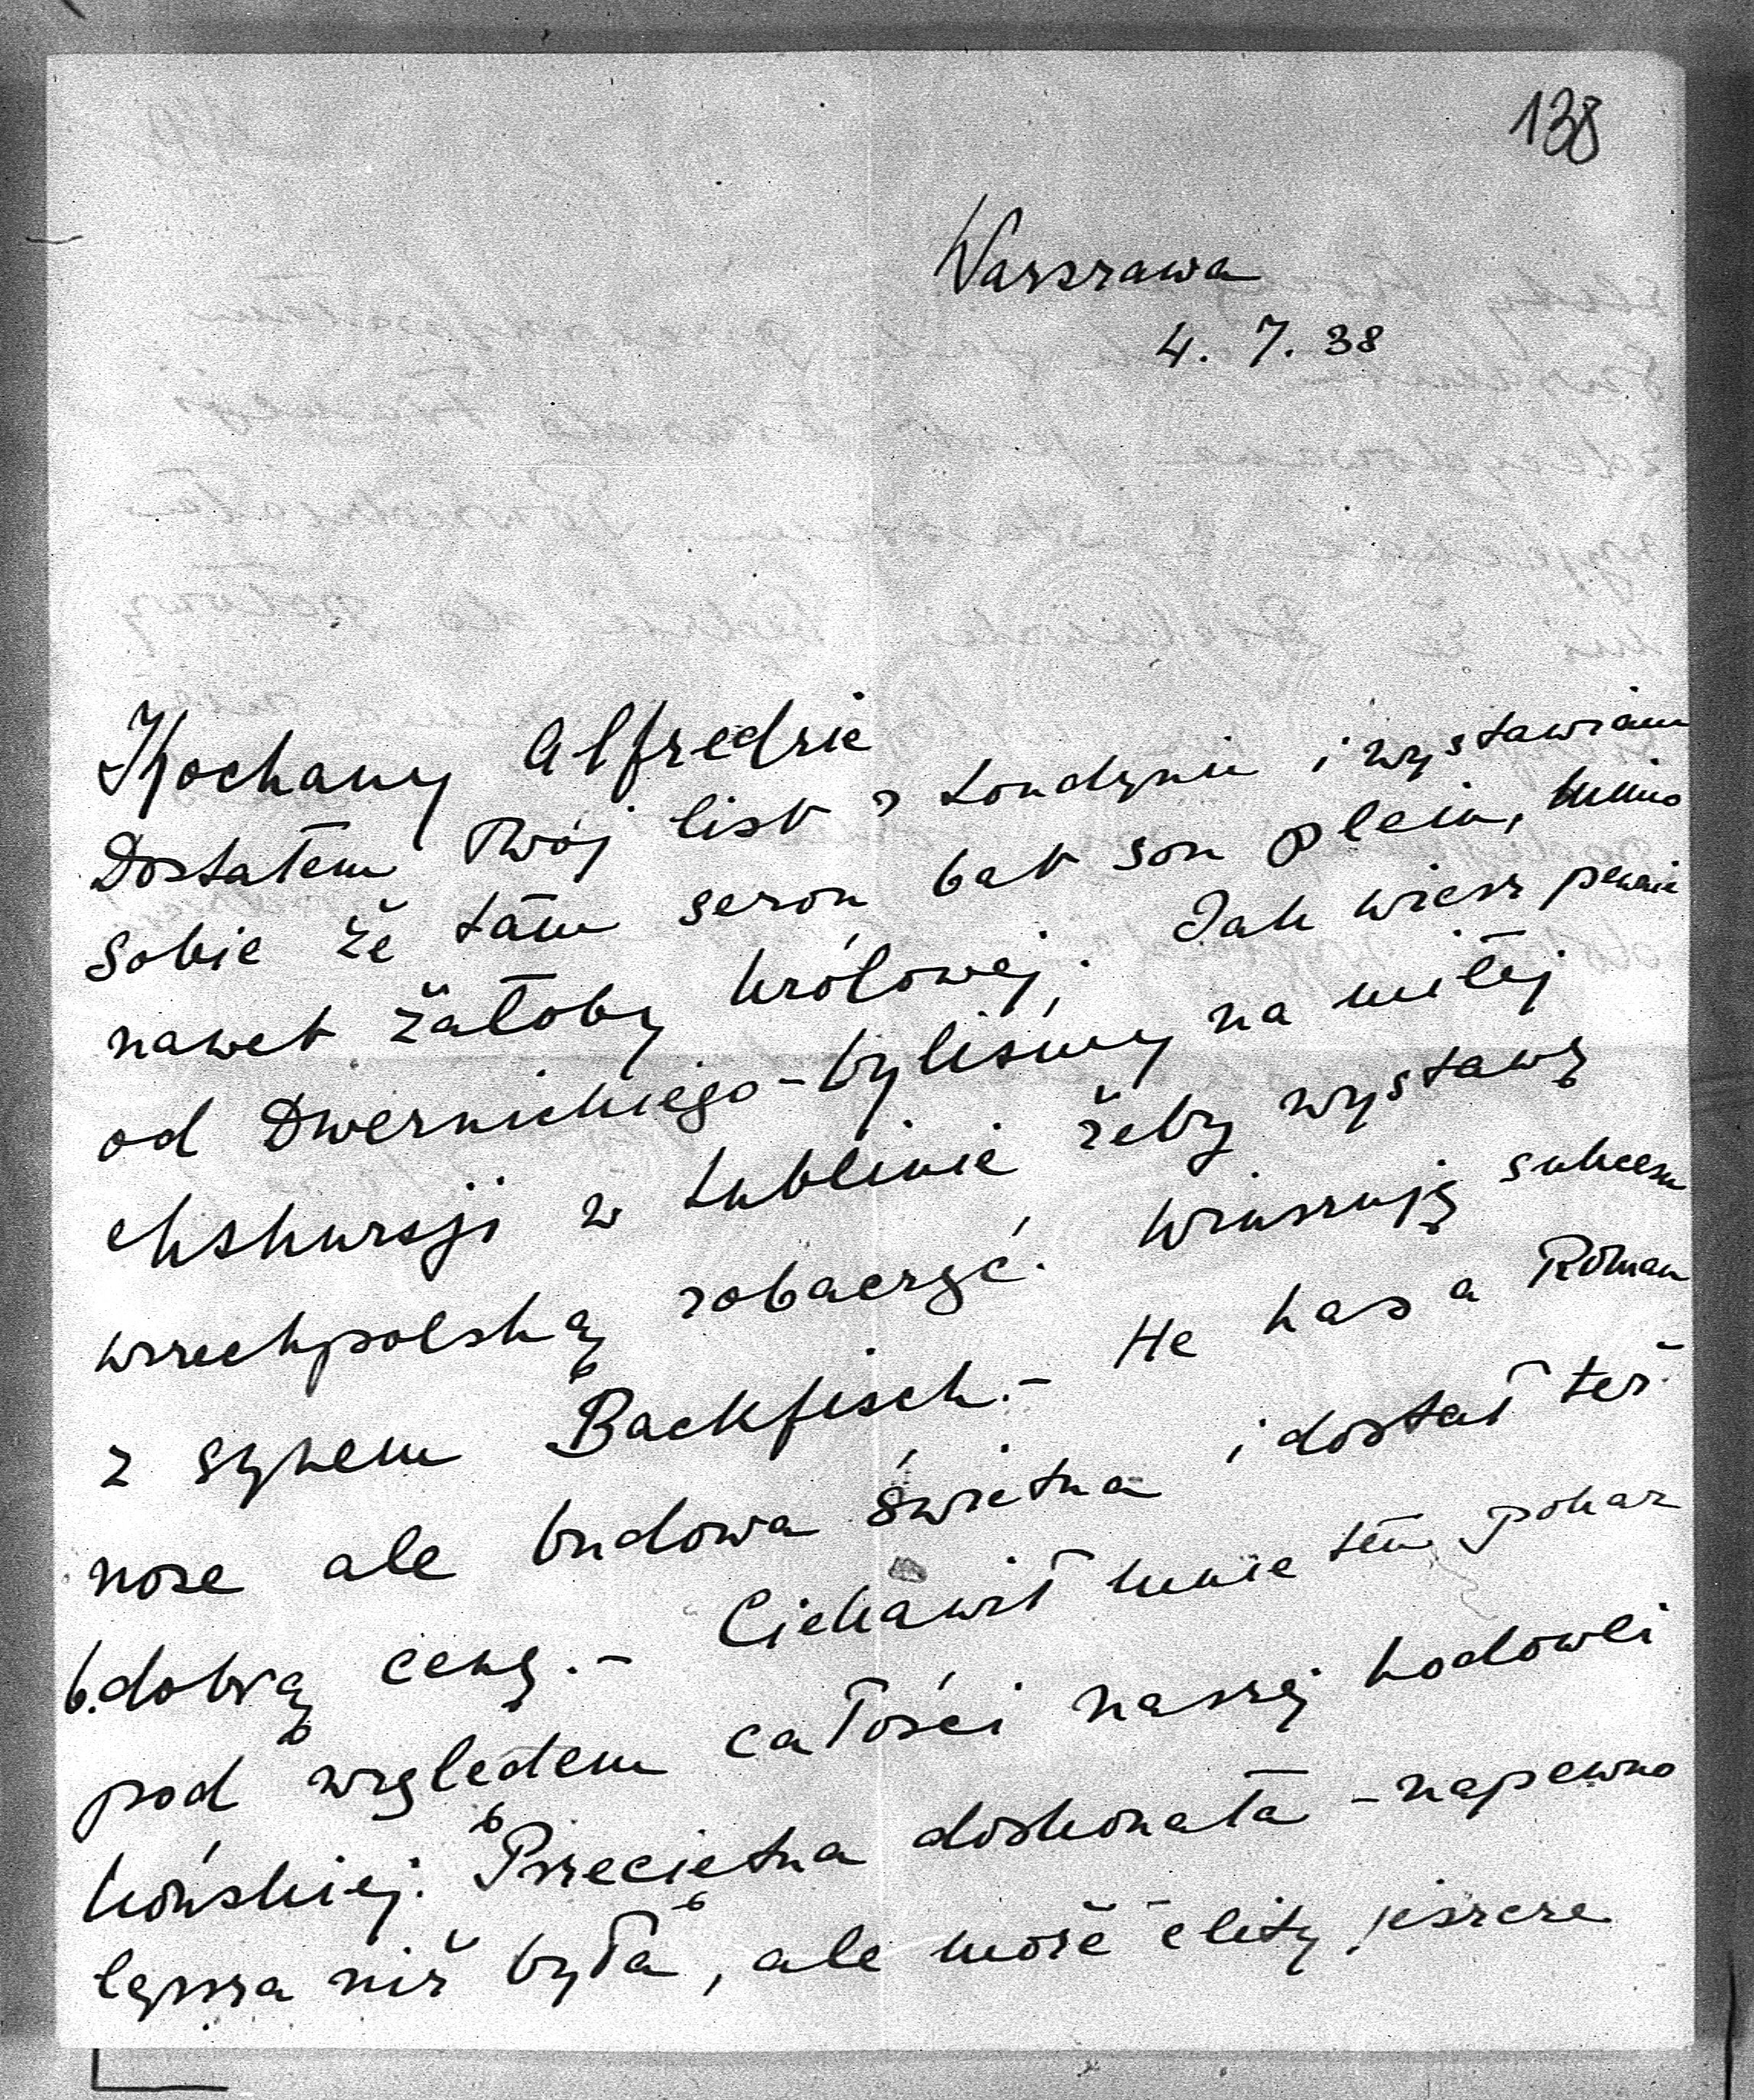 138
Warszawa
4. 7. 38
Kochany Alfredzie
Dostałem Twój list z Londynu i wystawiam
sobie że tam sezon bat son plein, mimo
nawet żałoby królowej. Jak wiesz pewnie
od Dwernickiego - byliśmy na miłej
ekskursji w Lublinie żeby wystawę
wszechpolską zobaczyć. Winszuję sukcesu
z synem Backfisch. - He has a Roman
nose ale budowa świetna i dostał też
b. dobrą cenę. - Ciekawił mnie ten pokaz
pod względem całości naszej hodowli
końskiej. Przeciętna doskonała - napewno
lepsza niż była, ale może elity jeszcze